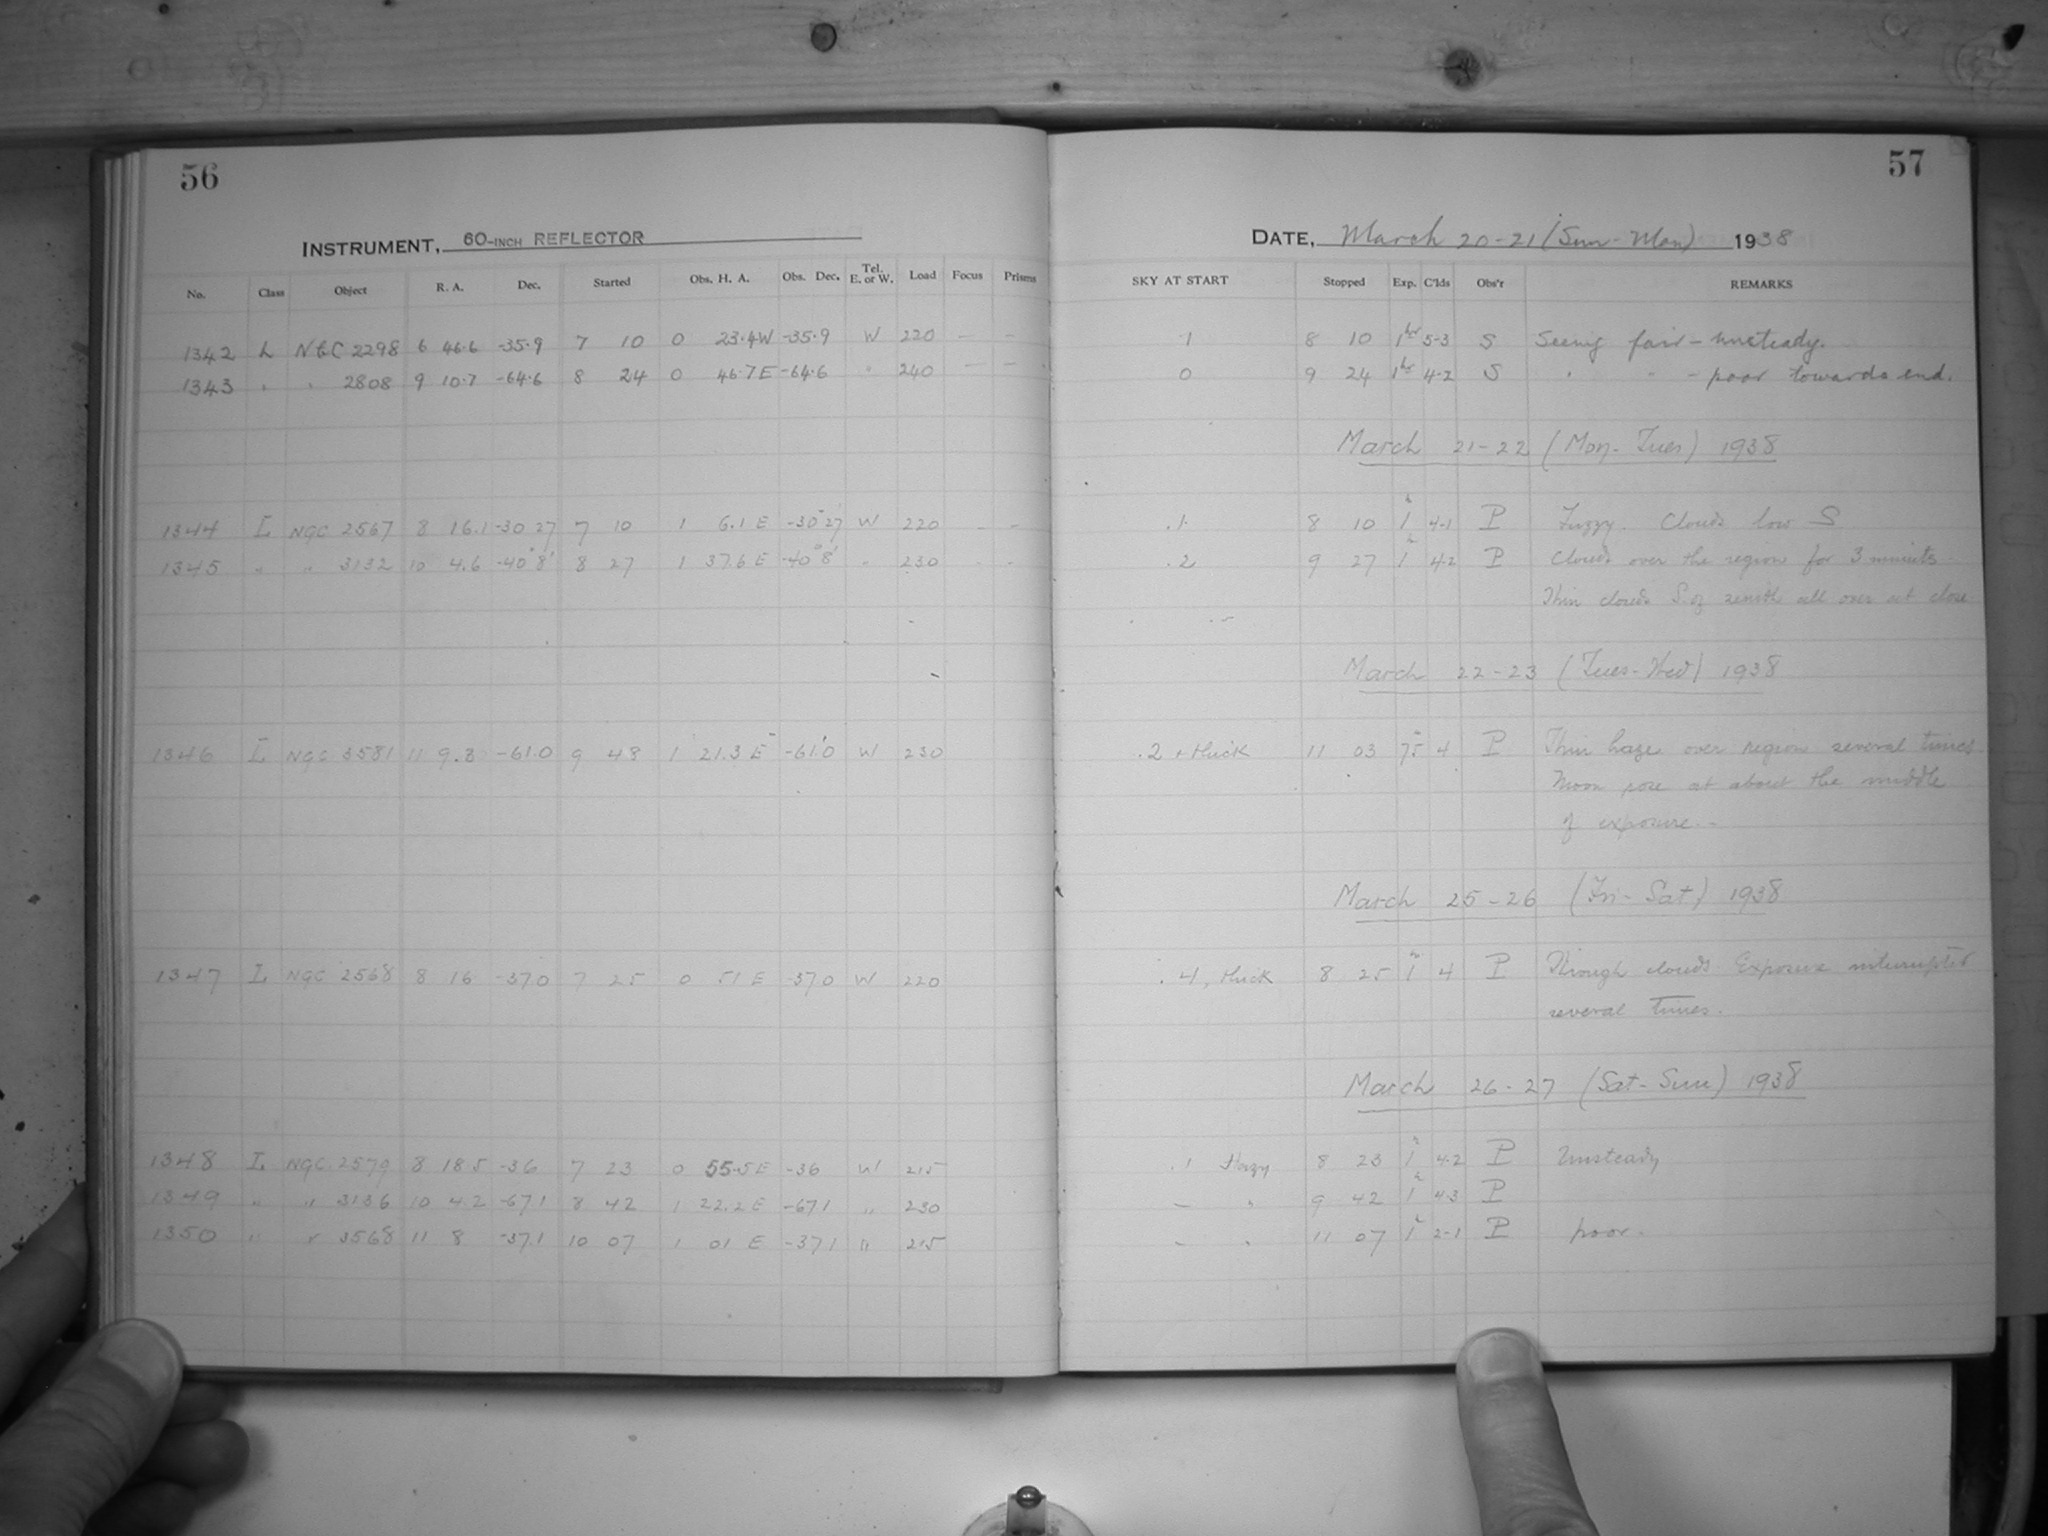 56
INSTRUMENT, 60-INCH REFLECTOR
No. Class Object R. A. Dec. Started Obs. H. A. Obs. Dec. Tel. E. or W. Load Focus Prisms
1342 L NGC 2298 6 46.6 -35.9 7 10 0 23.4W -35.9 W 220 — —
1343 " " 2808 9 10.7 -64.6 8 24 0 46.7E -64.6 " 240 — —
1344 L NGC 2567 8 16.1 -30 27 7 10 1 6.1 E -30° 27 W 220 - -
1345 " " 3132 10 4.6 -40° 8' 8 27 1 37.6 E -40° 8' " 230 - -
1346 L NGC 3581 11 9.3 -61.0 9 48 1 21.3 E -61.0 W 230
1347 L NGC 2568 8 16 -37.0 7 25 0 51 E -37.0 W 220
1348 L NGC 2579 8 18.5 -36 7 23 0 55.5E -36 W 215
1349 " " 3136 10 4.2 -67.1 8 42 1 22.2 E -67.1 " 230
1350 " " 3568 11 8 -37.1 10 07 1 01 E -37.1 " 215
57
DATE, March 20-21 (Sun-Mon) 1938
SKY AT START Stopped Exp. C'lds Obs'r REMARKS
.1 8 10 1hr 5-3 S Seeing fair - unsteady.
0 9 24 1hr 4-2 S " - - poor towards end.
March 21-22 (Mon-Tues) 1938
.1 8 10 1h 4-1 P Fuzzy. Clouds low S
.2 9 27 1h 4-2 P Clouds over the region for 3 minuits
Thin clouds S. of zenith all over at close
March 22-23 (Tues-Wed) 1938
.2 + thick 11 03 75m 4 P Thin haze over region several times
Moon rose at about the middle
of exposure.-
March 25-26 (Fri-Sat) 1938
.4, thick 8 25 1h 4 P Through clouds. Exposure interrupted
several times.
March 26-27 (Sat-Sun) 1938
.1 Hazy 8 23 1h 4-2 P Unsteady
— " 9 42 1h 4-3 P
- " 11 07 1h 2-1 P poor.